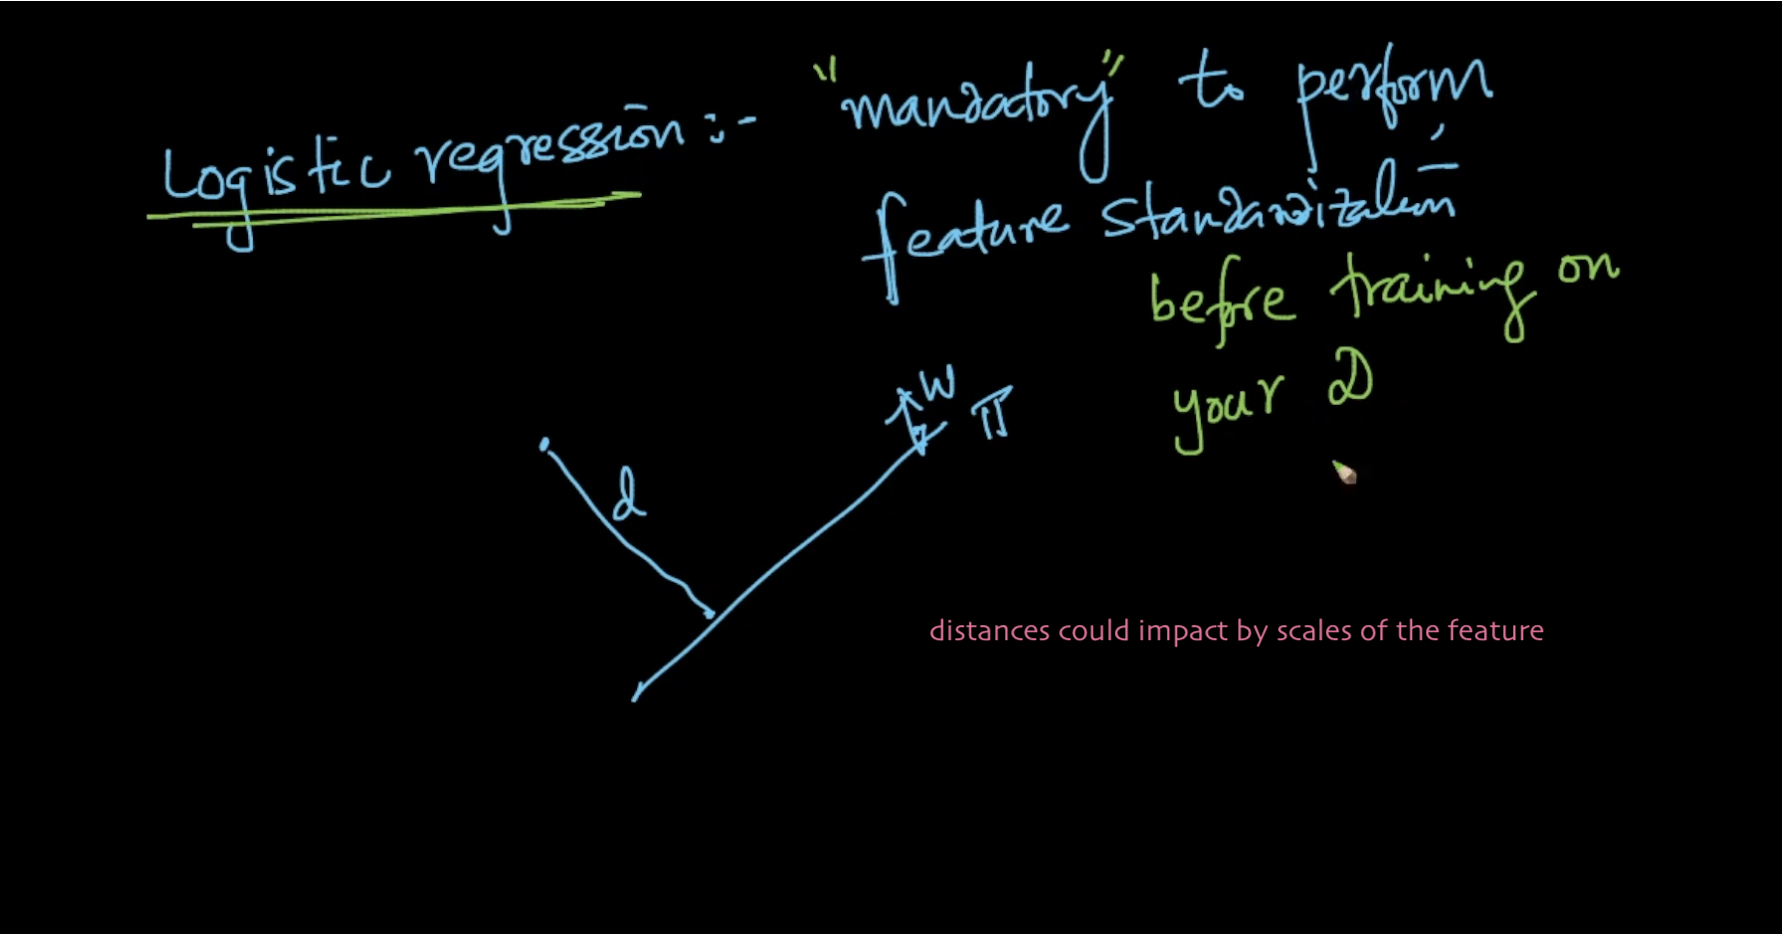 Logistic regression :- "mandatory" to perform
feature standardization
before training on
your D
W
π
d
distances could impact by scales of the feature